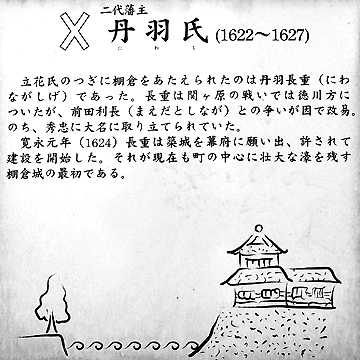 二代藩主
丹羽氏(1622〜1627)
にわし
立花氏のつぎに棚倉をあたえられたのは丹羽長重(にわ
ながしげ)であった。長重は関ヶ原の戦いでは徳川方に
ついたが、前田利長(まえだとしなが)との争いが因で改易。
のち、秀忠に大名に取り立てられていた。
寛永元年(1624)長重は築城を幕府に願い出、許されて
建設を開始した。それが現在も町の中心に壮大な濠を残す
棚倉城の最初である。